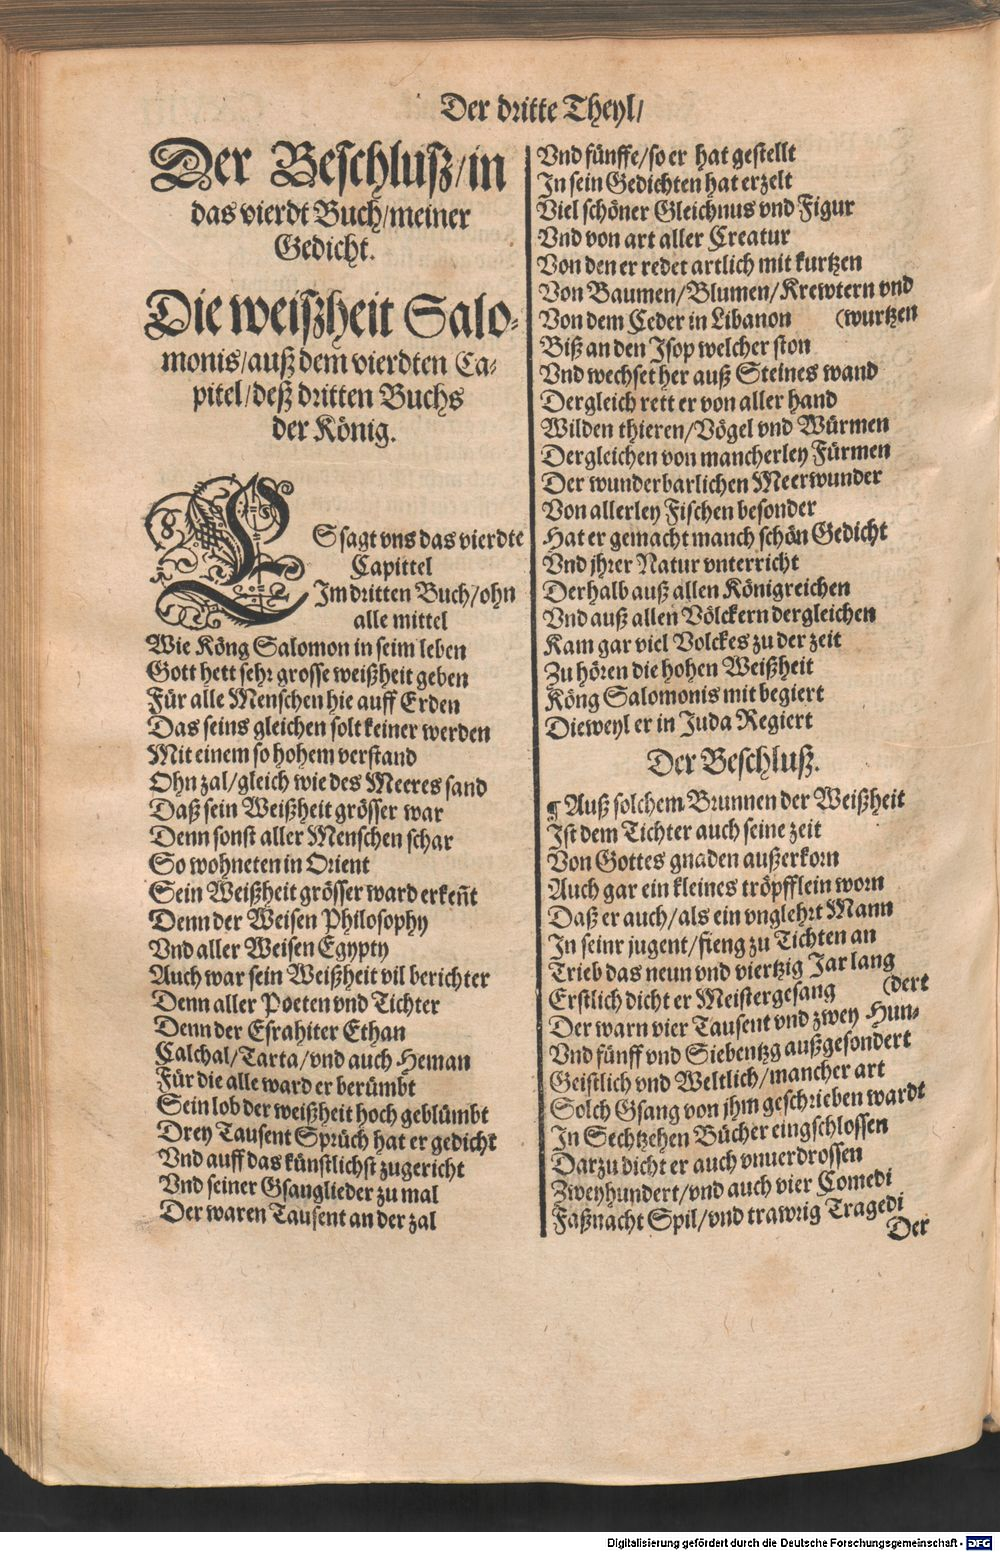 Der dritte Theyl/
Der Beschluß/in
das vierdt Buch/meiner
Gedicht.
Die weißheit Salo-
monis/auß dem vierdten Ca-
pitel/deß dritten Buchs
der König.
ES sagt vns das vierdte
Capittel
Im dritten Buch/ohn
alle mittel
Wie Köng Salomon in seim leben
Gott hett sehr grosse weißheit geben
Für alle Menschen hie auff Erden
Das seins gleichen solt keiner werden
Mit einem so hohem verstand
Ohn zal/gleich wie des Meeres sand
Daß sein Weißheit grösser war
Denn sonst aller Menschen schar
So wohneten in Orient
Sein Weißheit grösser ward erkeñt
Denn der Weisen Philosophy
Vnd aller Weisen Egypty
Auch war sein Weißheit vil berichter
Denn aller Poeten vnd Tichter
Denn der Esrahiter Ethan
Calchal/Tarta/vnd auch Heman
Für die alle ward er berümbt
Sein lob der weißheit hoch geblümbt
Drey Tausent Sprüch hat er gedicht
Vnd auff das künstlichst zugericht
Vnd seiner Gsanglieder zu mal
Der waren Tausent an der zal
Vnd fünffe/so er hat gestellt
In sein Gedichten hat erzelt
Viel schöner Gleichnus vnd Figur
Vnd von art aller Creatur
Von den er redet artlich mit kurtzen
Von Baumen/Blumen/Krewtern vnd
Von dem Ceder in Libanon (wurtzen
Biß an den Isop welcher ston
Vnd wechset her auß Steines wand
Dergleich rett er von aller hand
Wilden thieren/Vögel vnd Würmen
Dergleichen von mancherley Fürmen
Der wunderbarlichen Meerwunder
Von allerley Fischen besonder
Hat er gemacht manch schön Gedicht
Vnd jhrer Natur vnterricht
Derhalb auß allen Königreichen
Vnd auß allen Völckern dergleichen
Kam gar viel Volckes zu der zeit
Zu hören die hohen Weißheit
Köng Salomonis mit begiert
Dieweyl er in Juda Regiert
Der Beschluß.
¶ Auß solchem Brunnen der Weißheit
Ist dem Tichter auch seine zeit
Von Gottes gnaden außerkorn
Auch gar ein kleines tröpfflein worn
Daß er auch/als ein vnglehrt Mann
In seinr jugent/fieng zu Tichten an
Trieb das neun vnd viertzig Jar lang
Erstlich dicht er Meistergesang (dert
Der warn vier Tausent vnd zwey Hun-
Vnd fünff vnd Siebentzg außgesondert
Geistlich vnd Weltlich/mancher art
Solch Gsang von jhm geschrieben wardt
In Sechtzehen Bücher eingschlossen
Darzu dicht er auch vnuerdrossen
Zweyhundert/vnd auch vier Comedi
Faßnacht Spil/vnd trawrig Tragedi
Der
Digitalisierung gefördert durch die Deutsche Forschungsgemeinschaft - DFG